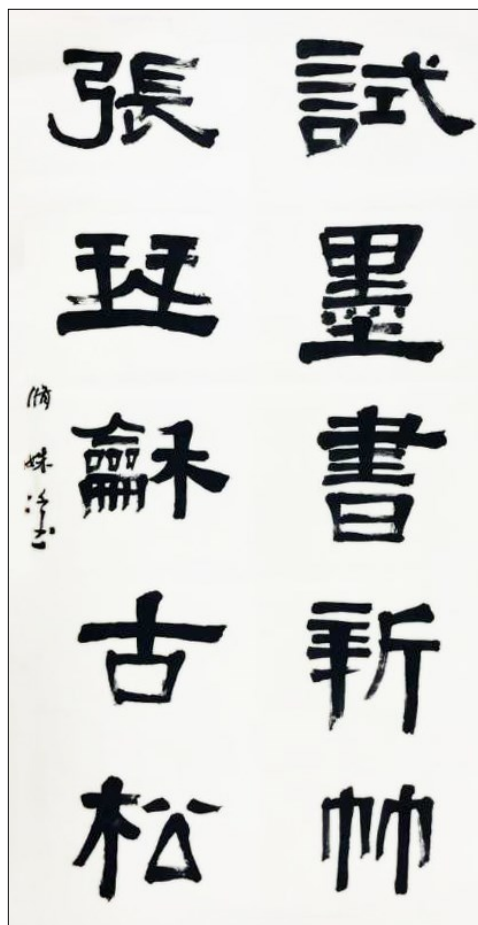 試墨書新竹
張琴龢古松